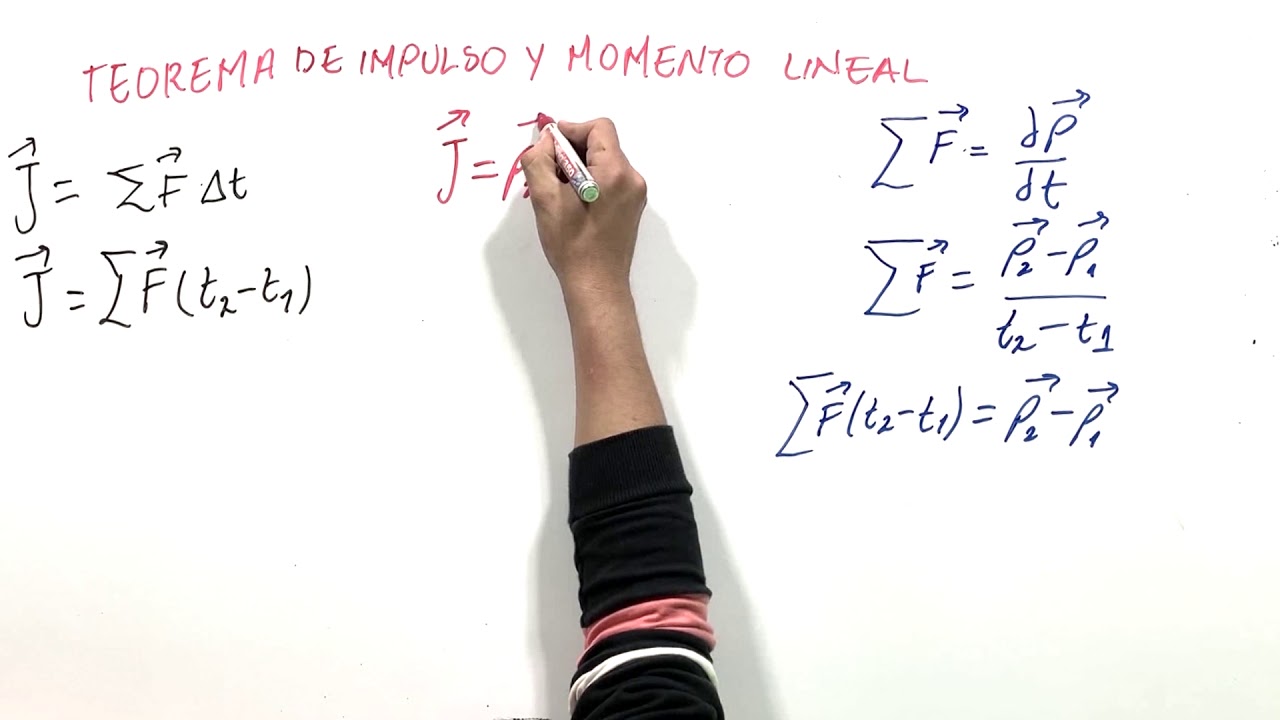 TEOREMA DE IMPULSO Y MOMENTO LINEAL
J⃗ = ΣF⃗ · Δt
J⃗ = ΣF⃗ (t₂ - t₁)
J⃗ = p⃗
ΣF⃗ = dp⃗/dt
ΣF⃗ = (p⃗₂ - p⃗₁)/(t₂ - t₁)
ΣF⃗ (t₂ - t₁) = p⃗₂ - p⃗₁